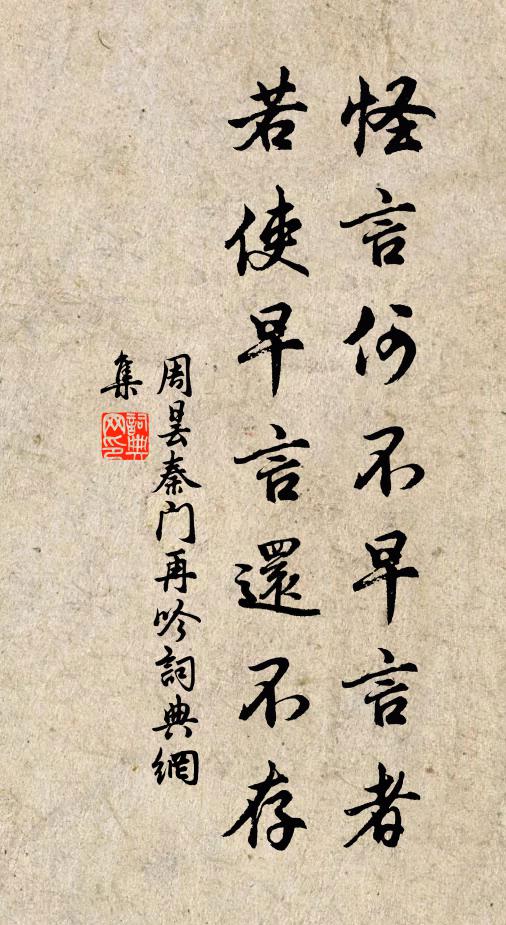 怪言何不早言者
若使早言還不存
周曇秦門再吟詞典網
集
詞典
网印